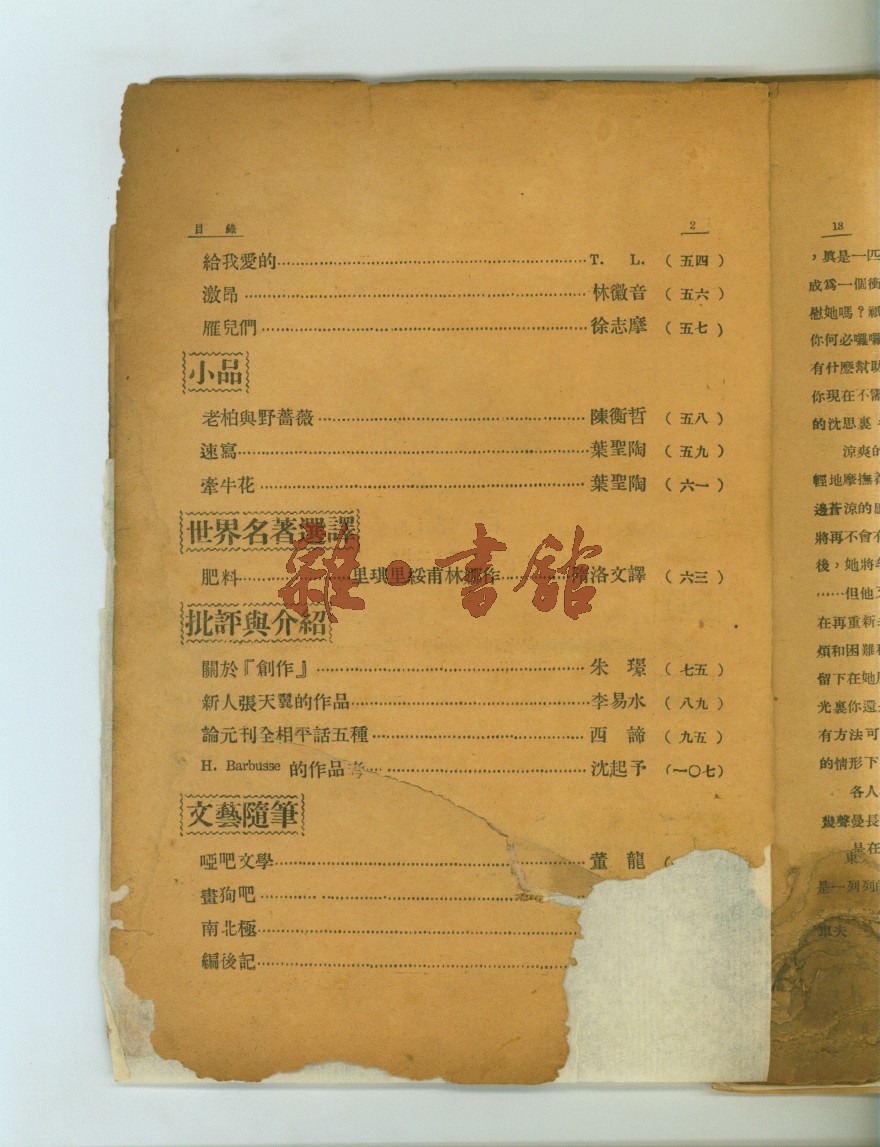 目錄 2
給我愛的……T. L.（五四）
激昂……林徽音（五六）
雁兒們……徐志摩（五七）
小品
老柏與野薔薇……陳衡哲（五八）
速寫……葉聖陶（五九）
牽牛花……葉聖陶（六一）
世界名著選譯
肥料……里琪里綏甫林娜作……隋洛文譯（六三）
批評與介紹
關於『創作』……朱璟（七五）
新人張天翼的作品……李易水（八九）
論元刊全相平話五種……西諦（九五）
H. Barbusse 的作品考……沈起予（一〇七）
文藝隨筆
啞吧文學……董龍（
畫狗吧……
南北極……
編後記……
雜·書館
13
，眞是一匹
成爲一個衝
慰她嗎？
你何必囉囉
有什麼幫助
你現在不需
的沈思裏
涼爽的
輕地摩撫着
邊蒼涼的
將再不會有
後，她將
……但他
在再重新
煩和困難
留下在她
光裏你還
有方法可
的情形下
各人
幾聲曼長
是在
東
是一列列的
車夫